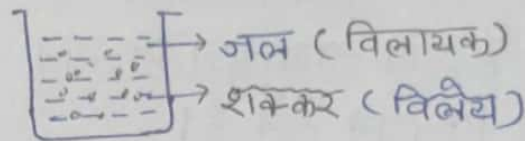 जल (विलायक)
शक्कर (विलेय)